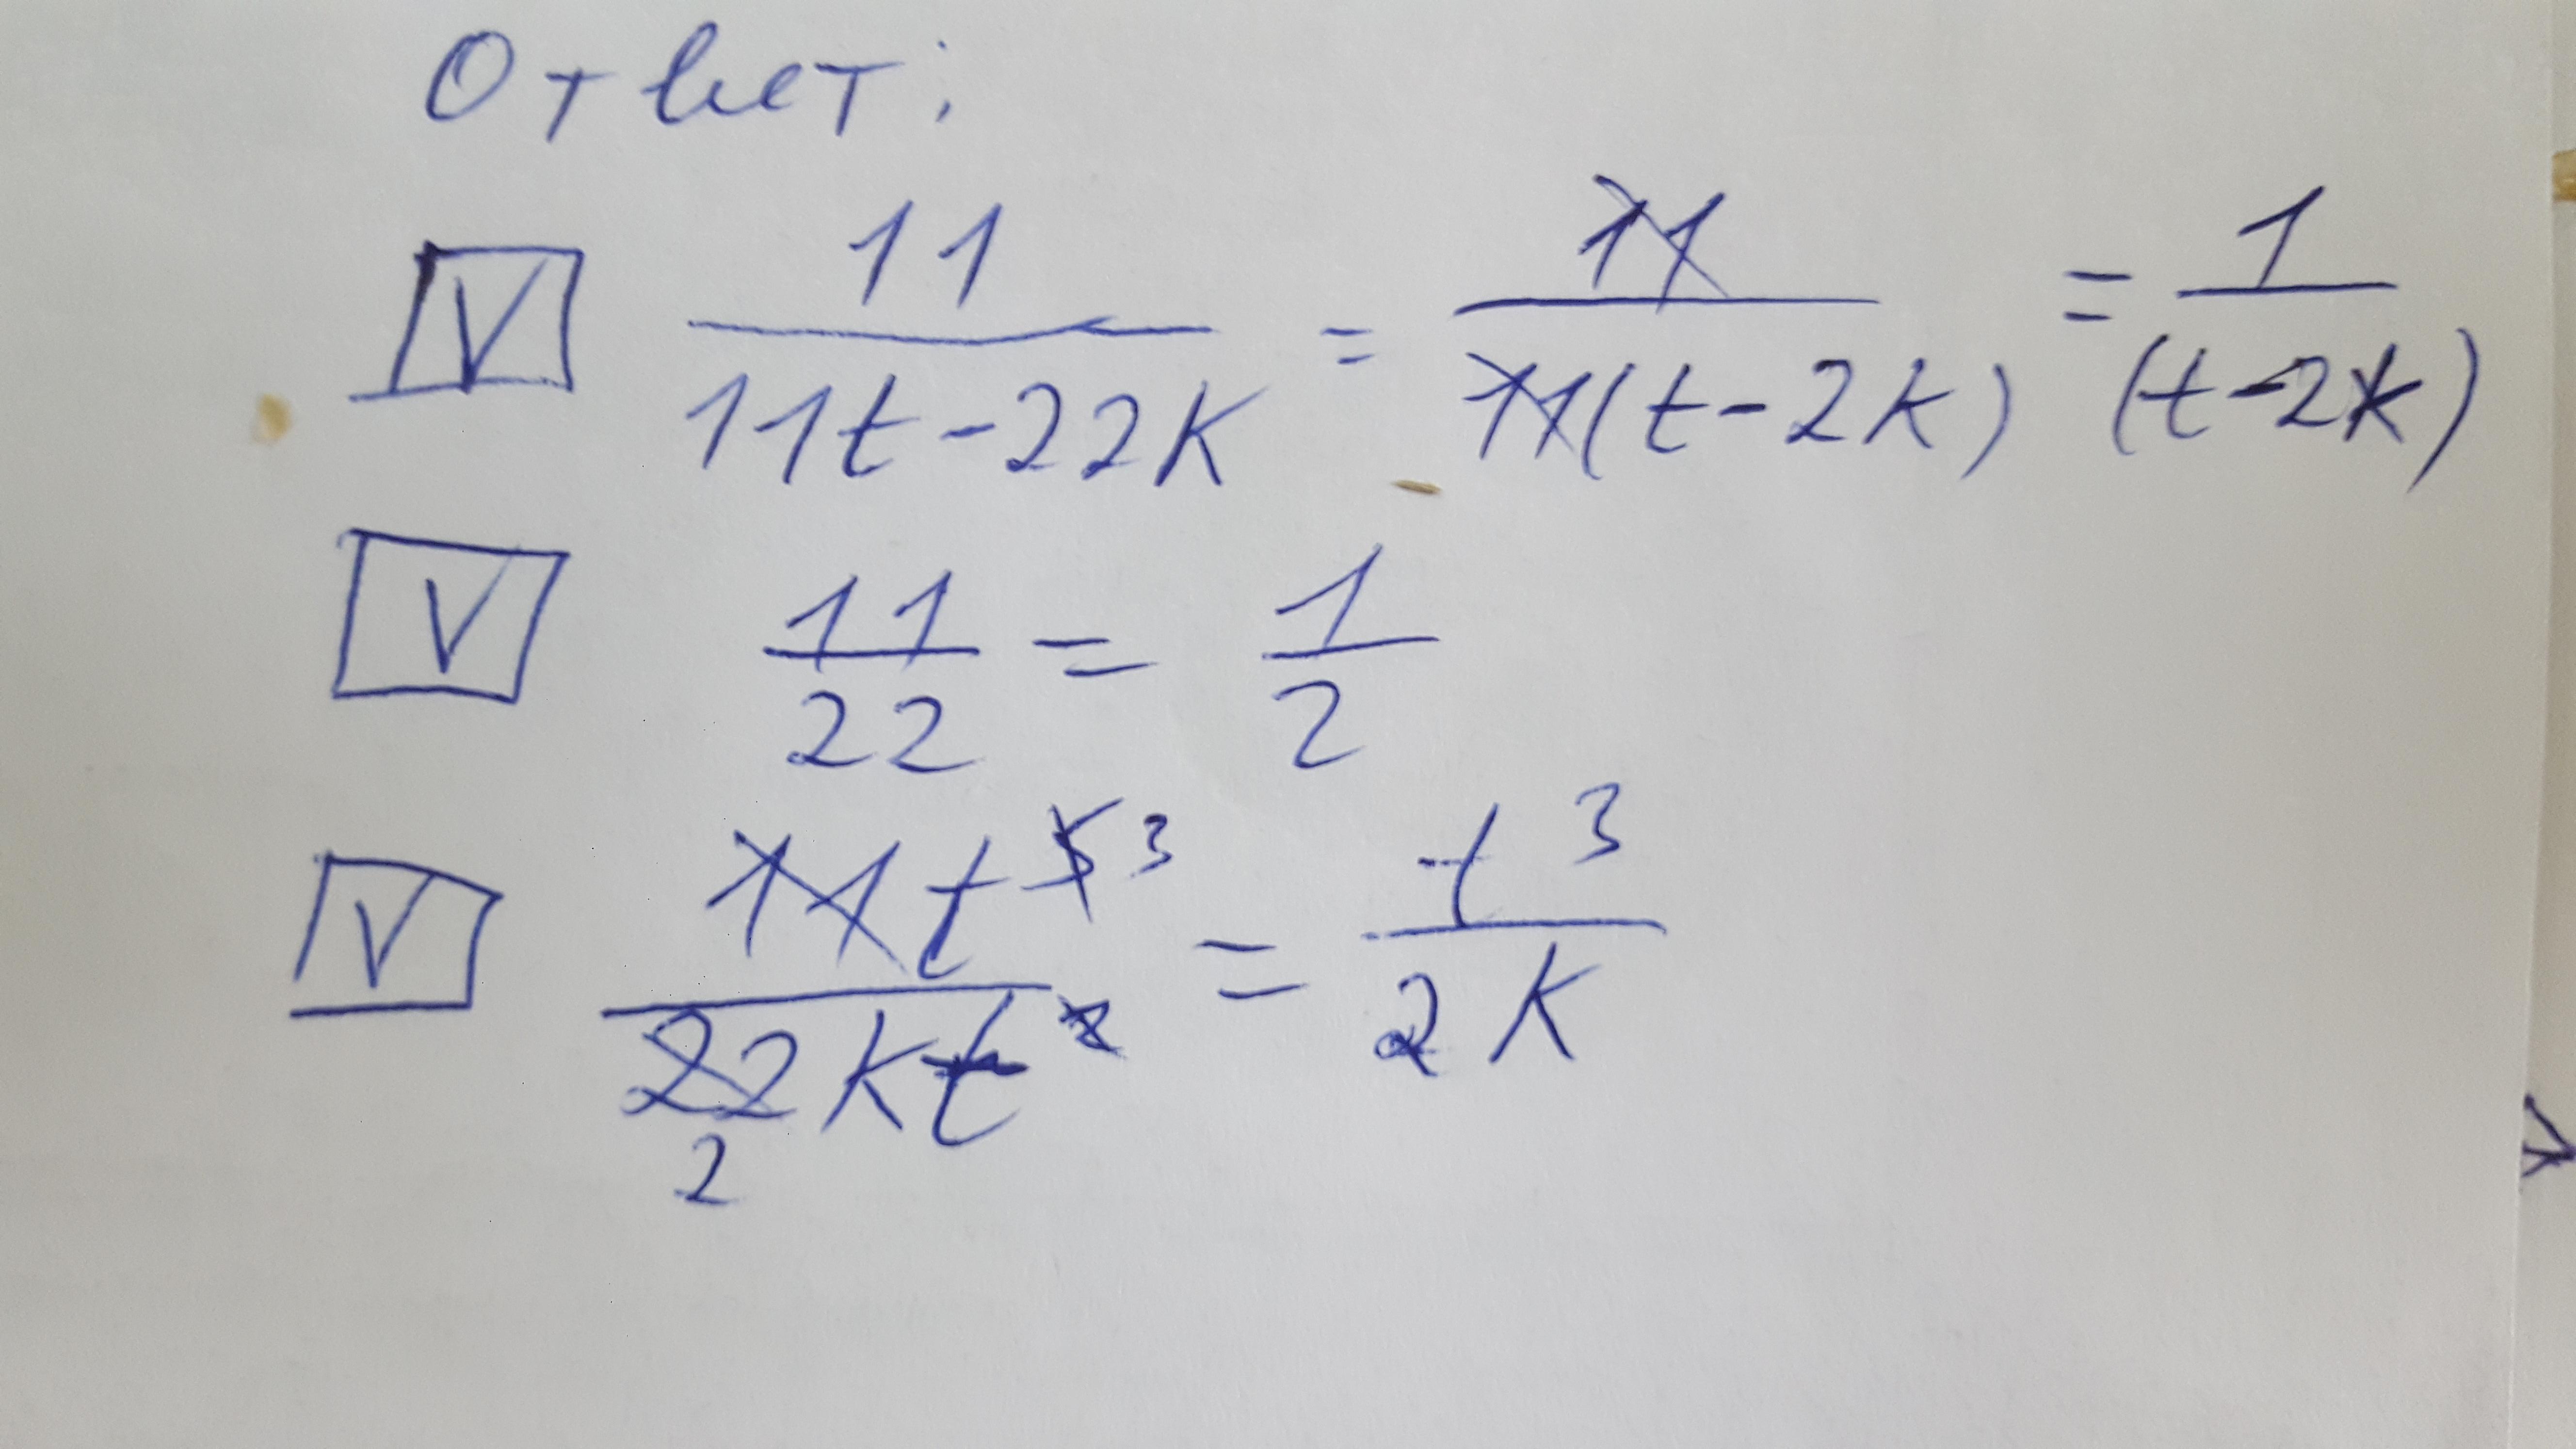 Ответ:
☑ 11/(11t-22k) = 11/(11(t-2k)) = 1/(t-2k)
☑ 11/22 = 1/2
☑ 11t⁵ ³/(22kt²) = t³/(2k)
2